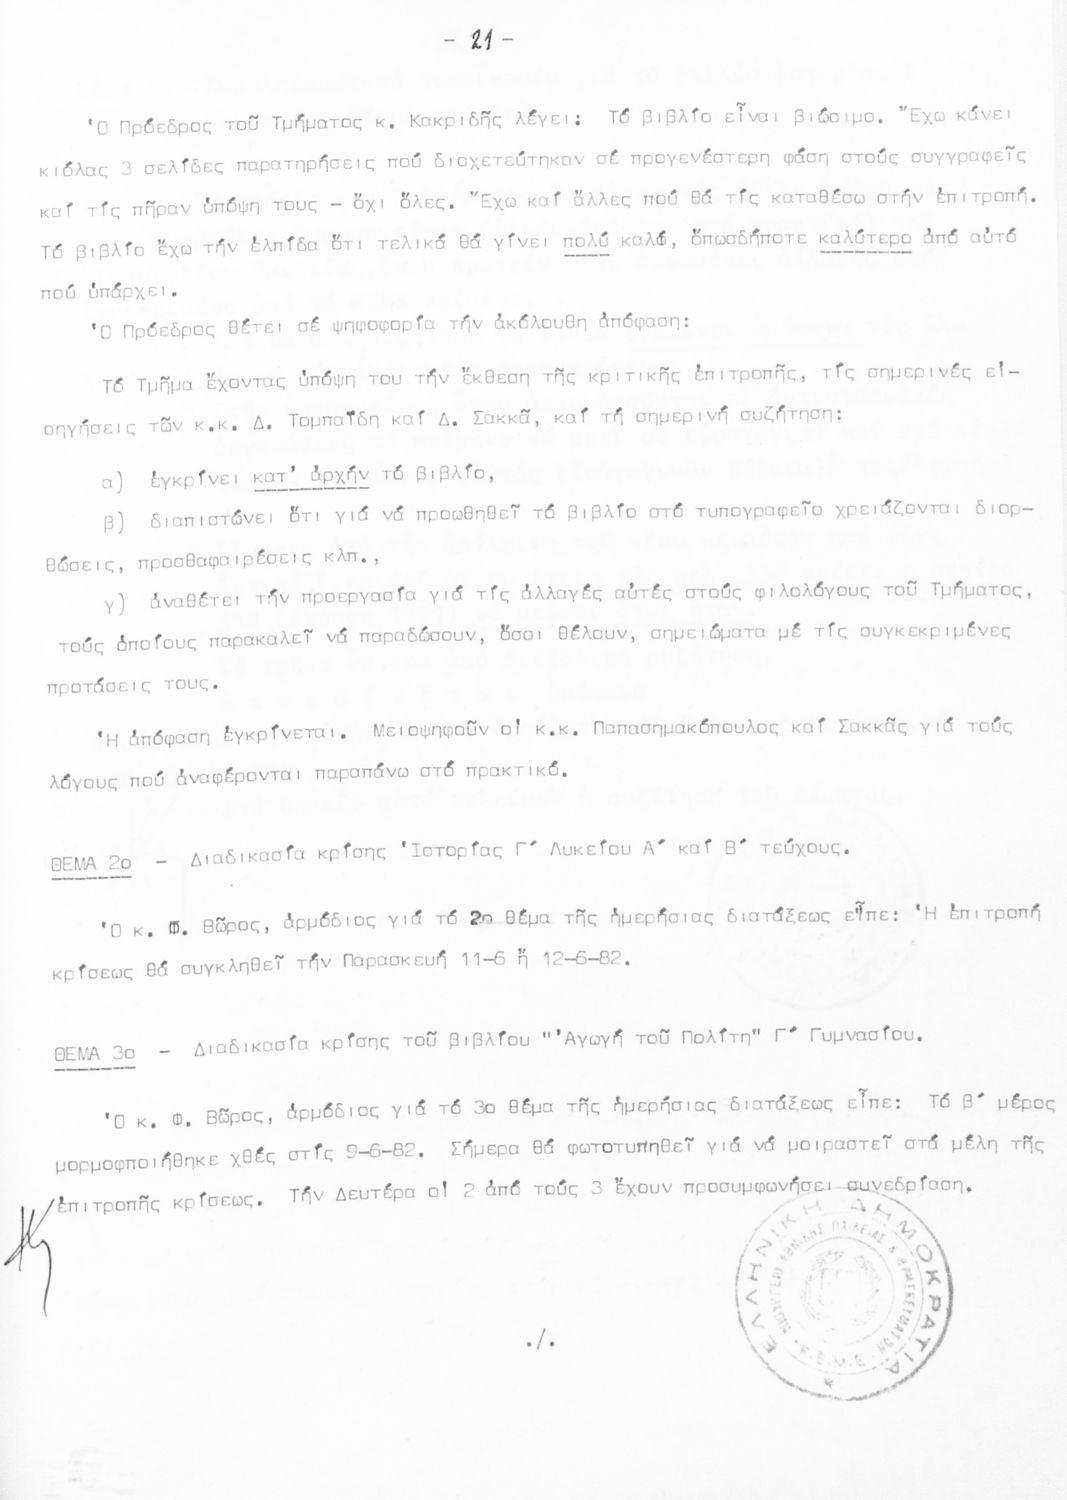 - 21 -
Ὁ Πρόεδρος τοῦ Τμήματος κ. Κακριδῆς λέγει: Τό βιβλίο εἶναι βιώσιμο. Ἔχω κάνει
κιόλας 3 σελίδες παρατηρήσεις πού διοχετεύτηκαν σέ προγενέστερη φάση στούς συγγραφεῖς
καί τίς πῆραν ὑπόψη τους - ὄχι ὅλες. Ἔχω καί ἄλλες πού θά τίς καταθέσω στήν ἐπιτροπή.
Τό βιβλίο ἔχω τήν ἐλπίδα ὅτι τελικά θά γίνει πολύ καλό, ὁπωσδήποτε καλύτερο ἀπό αὐτό
πού ὑπάρχει.
Ὁ Πρόεδρος θέτει σέ ψηφοφορία τήν ἀκόλουθη ἀπόφαση:
Τό Τμῆμα ἔχοντας ὑπόψη του τήν ἔκθεση τῆς κριτικῆς ἐπιτροπῆς, τίς σημερινές εἰ-
σηγήσεις τῶν κ.κ. Δ. Τομπαΐδη καί Δ. Σακκᾶ, καί τή σημερινή συζήτηση:
α) ἐγκρίνει κατ' ἀρχήν τό βιβλίο,
β) διαπιστώνει ὅτι γιά νά προωθηθεῖ τό βιβλίο στό τυπογραφεῖο χρειάζονται διορ-
θώσεις, προσθαφαιρέσεις κλπ.,
γ) ἀναθέτει τήν προεργασία γιά τίς ἀλλαγές αὐτές στούς φιλολόγους τοῦ Τμήματος,
τούς ὁποίους παρακαλεῖ νά παραδώσουν, ὅσοι θέλουν, σημειώματα μέ τίς συγκεκριμένες
προτάσεις τους.
Ἡ ἀπόφαση ἐγκρίνεται. Μειοψηφοῦν οἱ κ.κ. Παπασημακόπουλος καί Σακκᾶς γιά τούς
λόγους πού ἀναφέρονται παραπάνω στό πρακτικό.
ΘΕΜΑ 2ο - Διαδικασία κρίσης Ἱστορίας Γ´ Λυκείου Α´ καί Β´ τεύχους.
Ὁ κ. Φ. Βῶρος, ἁρμόδιος γιά τό 2ο θέμα τῆς ἡμερήσιας διατάξεως εἶπε: Ἡ ἐπιτροπή
κρίσεως θά συγκληθεῖ τήν Παρασκευή 11-6 ἤ 12-6-82.
ΘΕΜΑ 3ο - Διαδικασία κρίσης τοῦ βιβλίου "Ἀγωγή τοῦ Πολίτη" Γ´ Γυμνασίου.
Ὁ κ. Φ. Βῶρος, ἁρμόδιος γιά τό 3ο θέμα τῆς ἡμερήσιας διατάξεως εἶπε: Τό β´ μέρος
μορμοφποιήθηκε χθές στίς 9-6-82. Σήμερα θά φωτοτυπηθεῖ γιά νά μοιραστεῖ στά μέλη τῆς
ἐπιτροπῆς κρίσεως. Τήν Δευτέρα οἱ 2 ἀπό τούς 3 ἔχουν προσυμφωνήσει συνεδρίαση.
ΕΛΛΗΝΙΚΗ ΔΗΜΟΚΡΑΤΙΑ
ΕΘΝΙΚΗΣ ΠΑΙΔΕΙΑΣ & ΘΡΗΣΚΕΥΜΑΤΩΝ
Κ.Ε.Μ.Ε.
./.